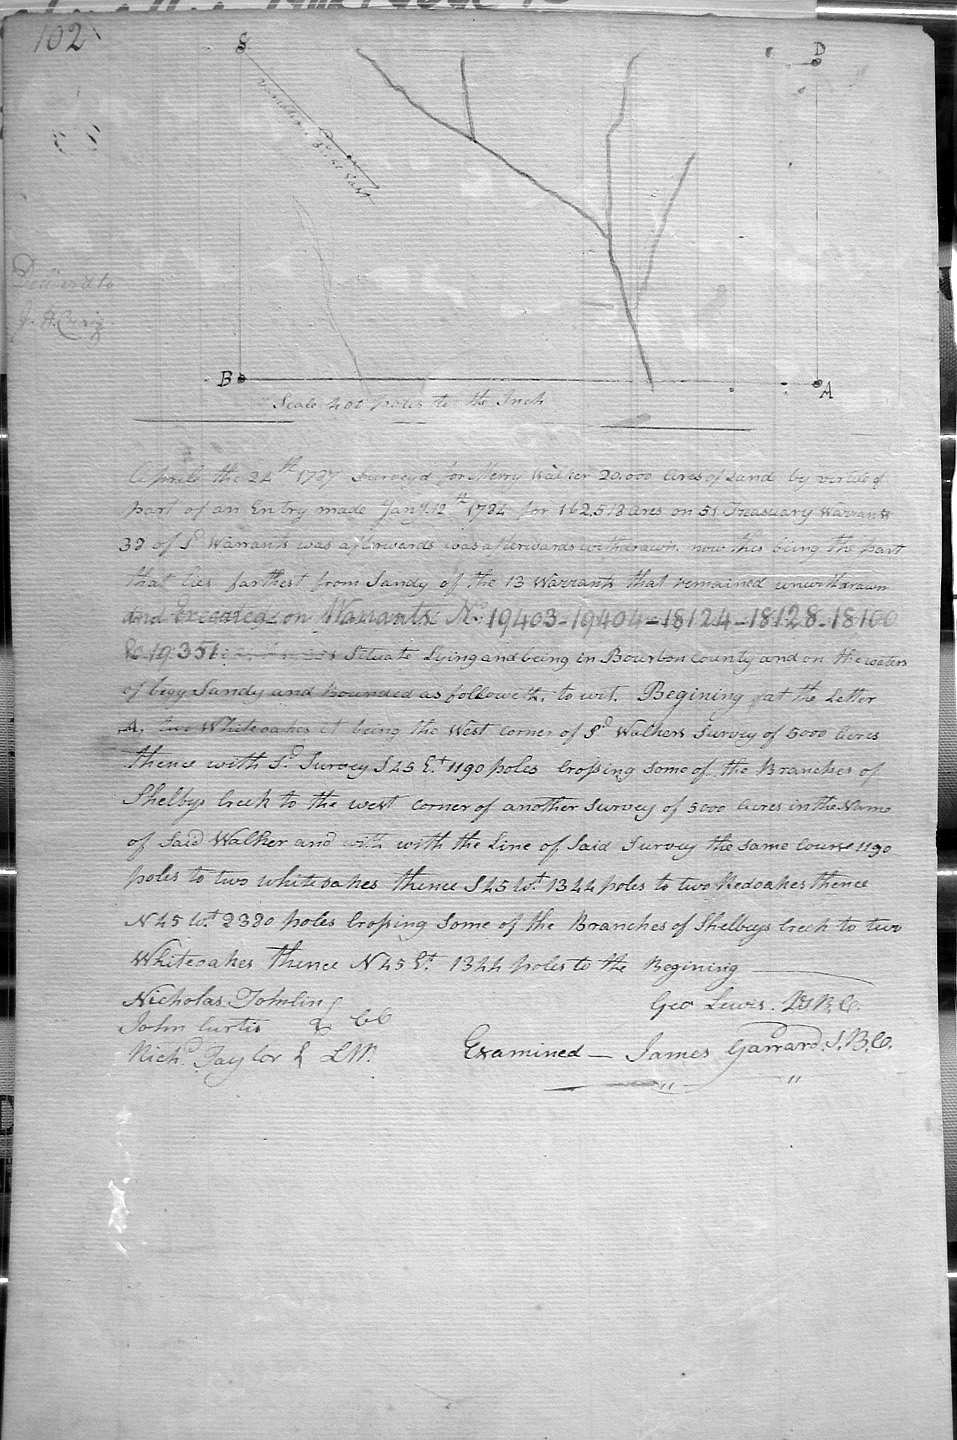 102
D
Variation 3° 40 East
Deliverd to
J. H. Craig
B
A
Scale 400 poles to the Inch
April the 24th 1787 Surveyd for Merry Walker 20,000 Acres of Land by virtue of
part of an Entry made Jany. 12th 1784 for 162,518 acres on 51 Treasuary Warrants
38 of Sd Warrants was afterwards was afterwards withdrawn now this being the part
that lies farthest from Sandy of the 13 Warrants that remained unwithdrawn
And Executed on Warrants No. 19403-19404-18124-18128-18100
& 19351 Situate Lying and being in Bourbon County and on the waters
of bigg Sandy and Bounded as followeth, to wit. Begining at the Letter
A, two Whiteoakes it being the West corner of Sd Walkers Survey of 5000 Acres
thence with Sd. Survey S 45 Et 1190 poles Crossing Some of the Branches of
Shelbys Creek to the west corner of another Survey of 5000 Acres in the Name
of Said Walker and with with the Line of Said Survey the same Course 1190
poles to two whiteoakes thence S 45 Wt 1344 poles to two Redoakes thence
N 45 Wt 2380 poles Crossing Some of the Branches of Shelbys Creek to two
Whiteoakes thence N 45 Et. 1344 poles to the Begining
Nicholas Tomlin
John Curtis } CC
Richd Taylor } LM.
Geo Lewis. DS B.C.
Examined — James Garrard. S.B.C.